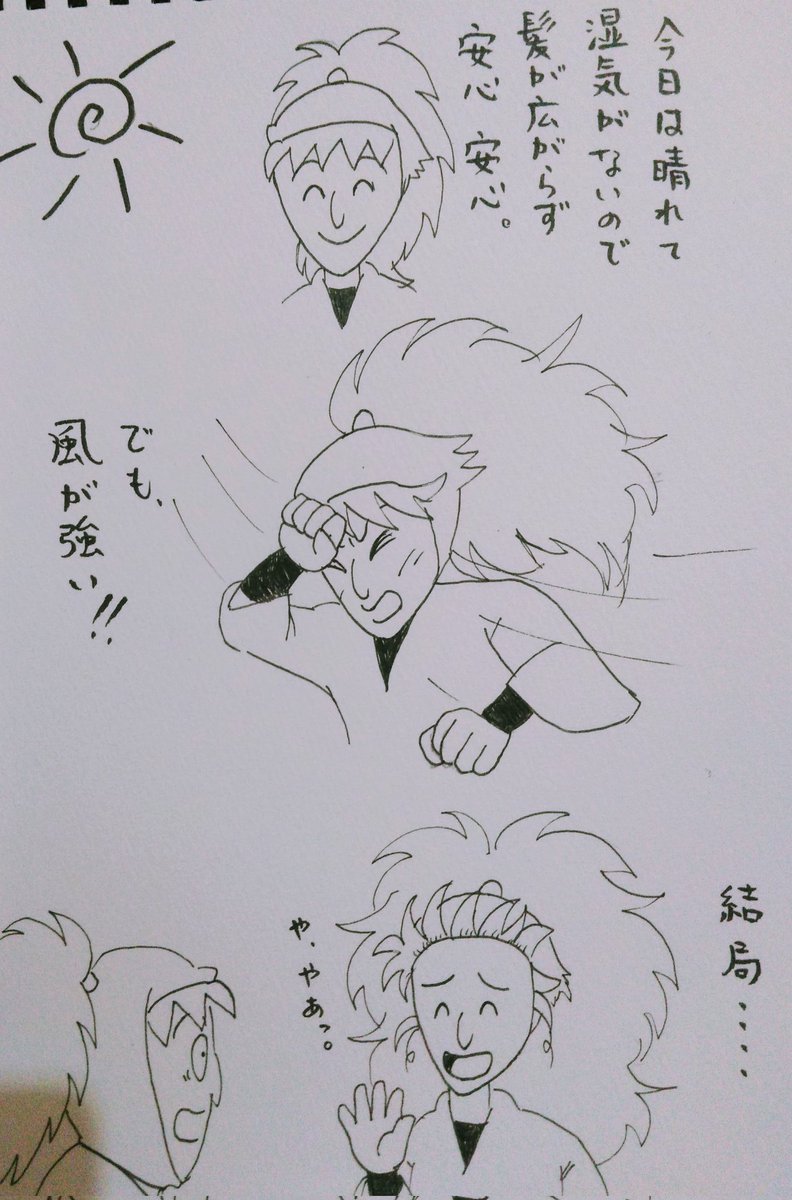 今日は晴れて
湿気がないので
髪が広がらず
安心安心。
でも、
風が強い!!
結局‥‥
や、やあっ。